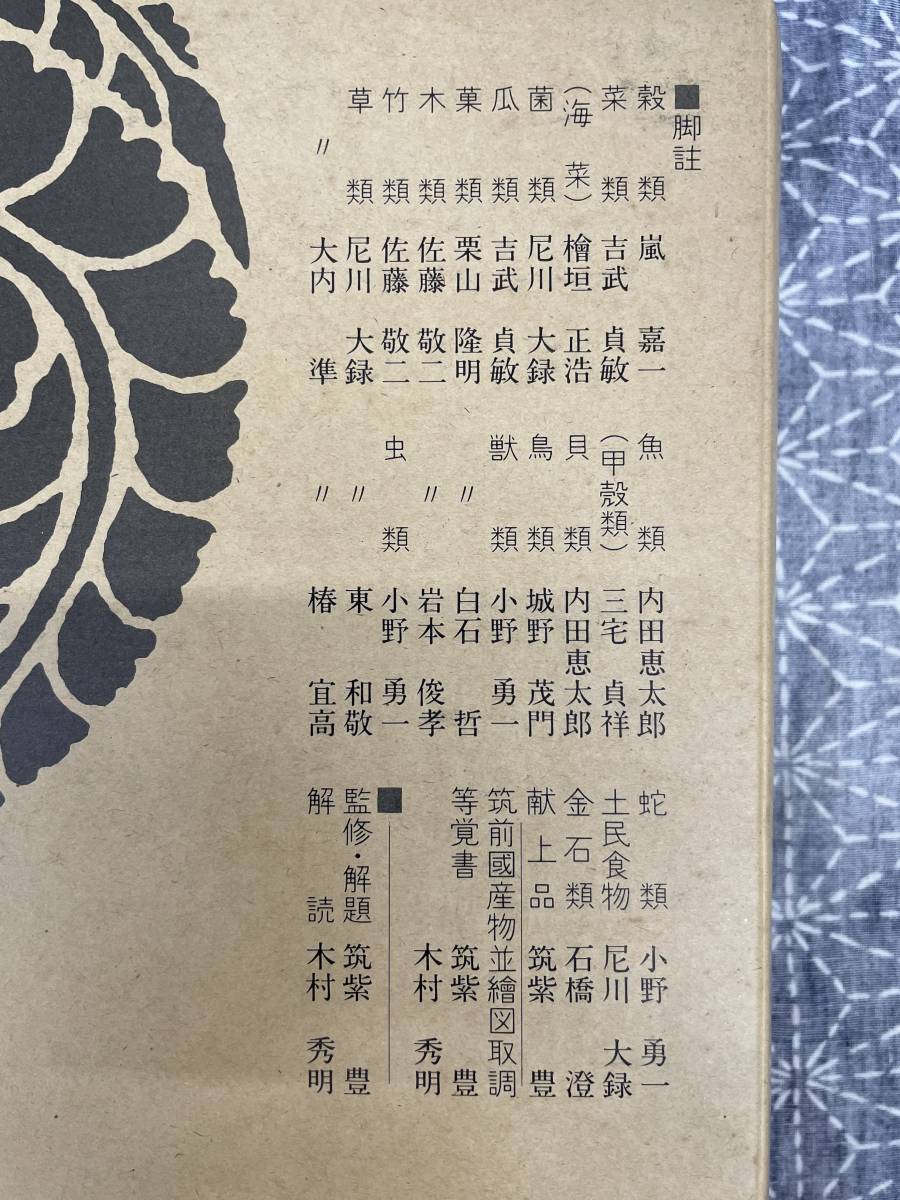 ■脚註
穀類 嵐 嘉一
菜類 吉武 貞敏
(海菜) 檜垣 正浩
菌類 尼川 大録
瓜類 吉武 貞敏
菓類 栗山 隆明
木類 佐藤 敬二
竹類 佐藤 敬二
草類 尼川 大録
〃 大内 準
魚類 内田恵太郎
(甲殻類) 三宅 貞祥
貝類 内田恵太郎
鳥類 城野 茂門
獣類 小野 勇一
〃 白石 哲
〃 岩本 俊孝
虫類 小野 勇一
〃 東 和敬
〃 椿 宜高
蛇類 小野 勇一
土民食物 尼川 大録
金石類 石橋 澄
献上品 筑紫 豊
筑前國産物並繪図取調
等覚書 筑紫 豊
木村 秀明
■
監修・解題 筑紫 豊
解読 木村 秀明